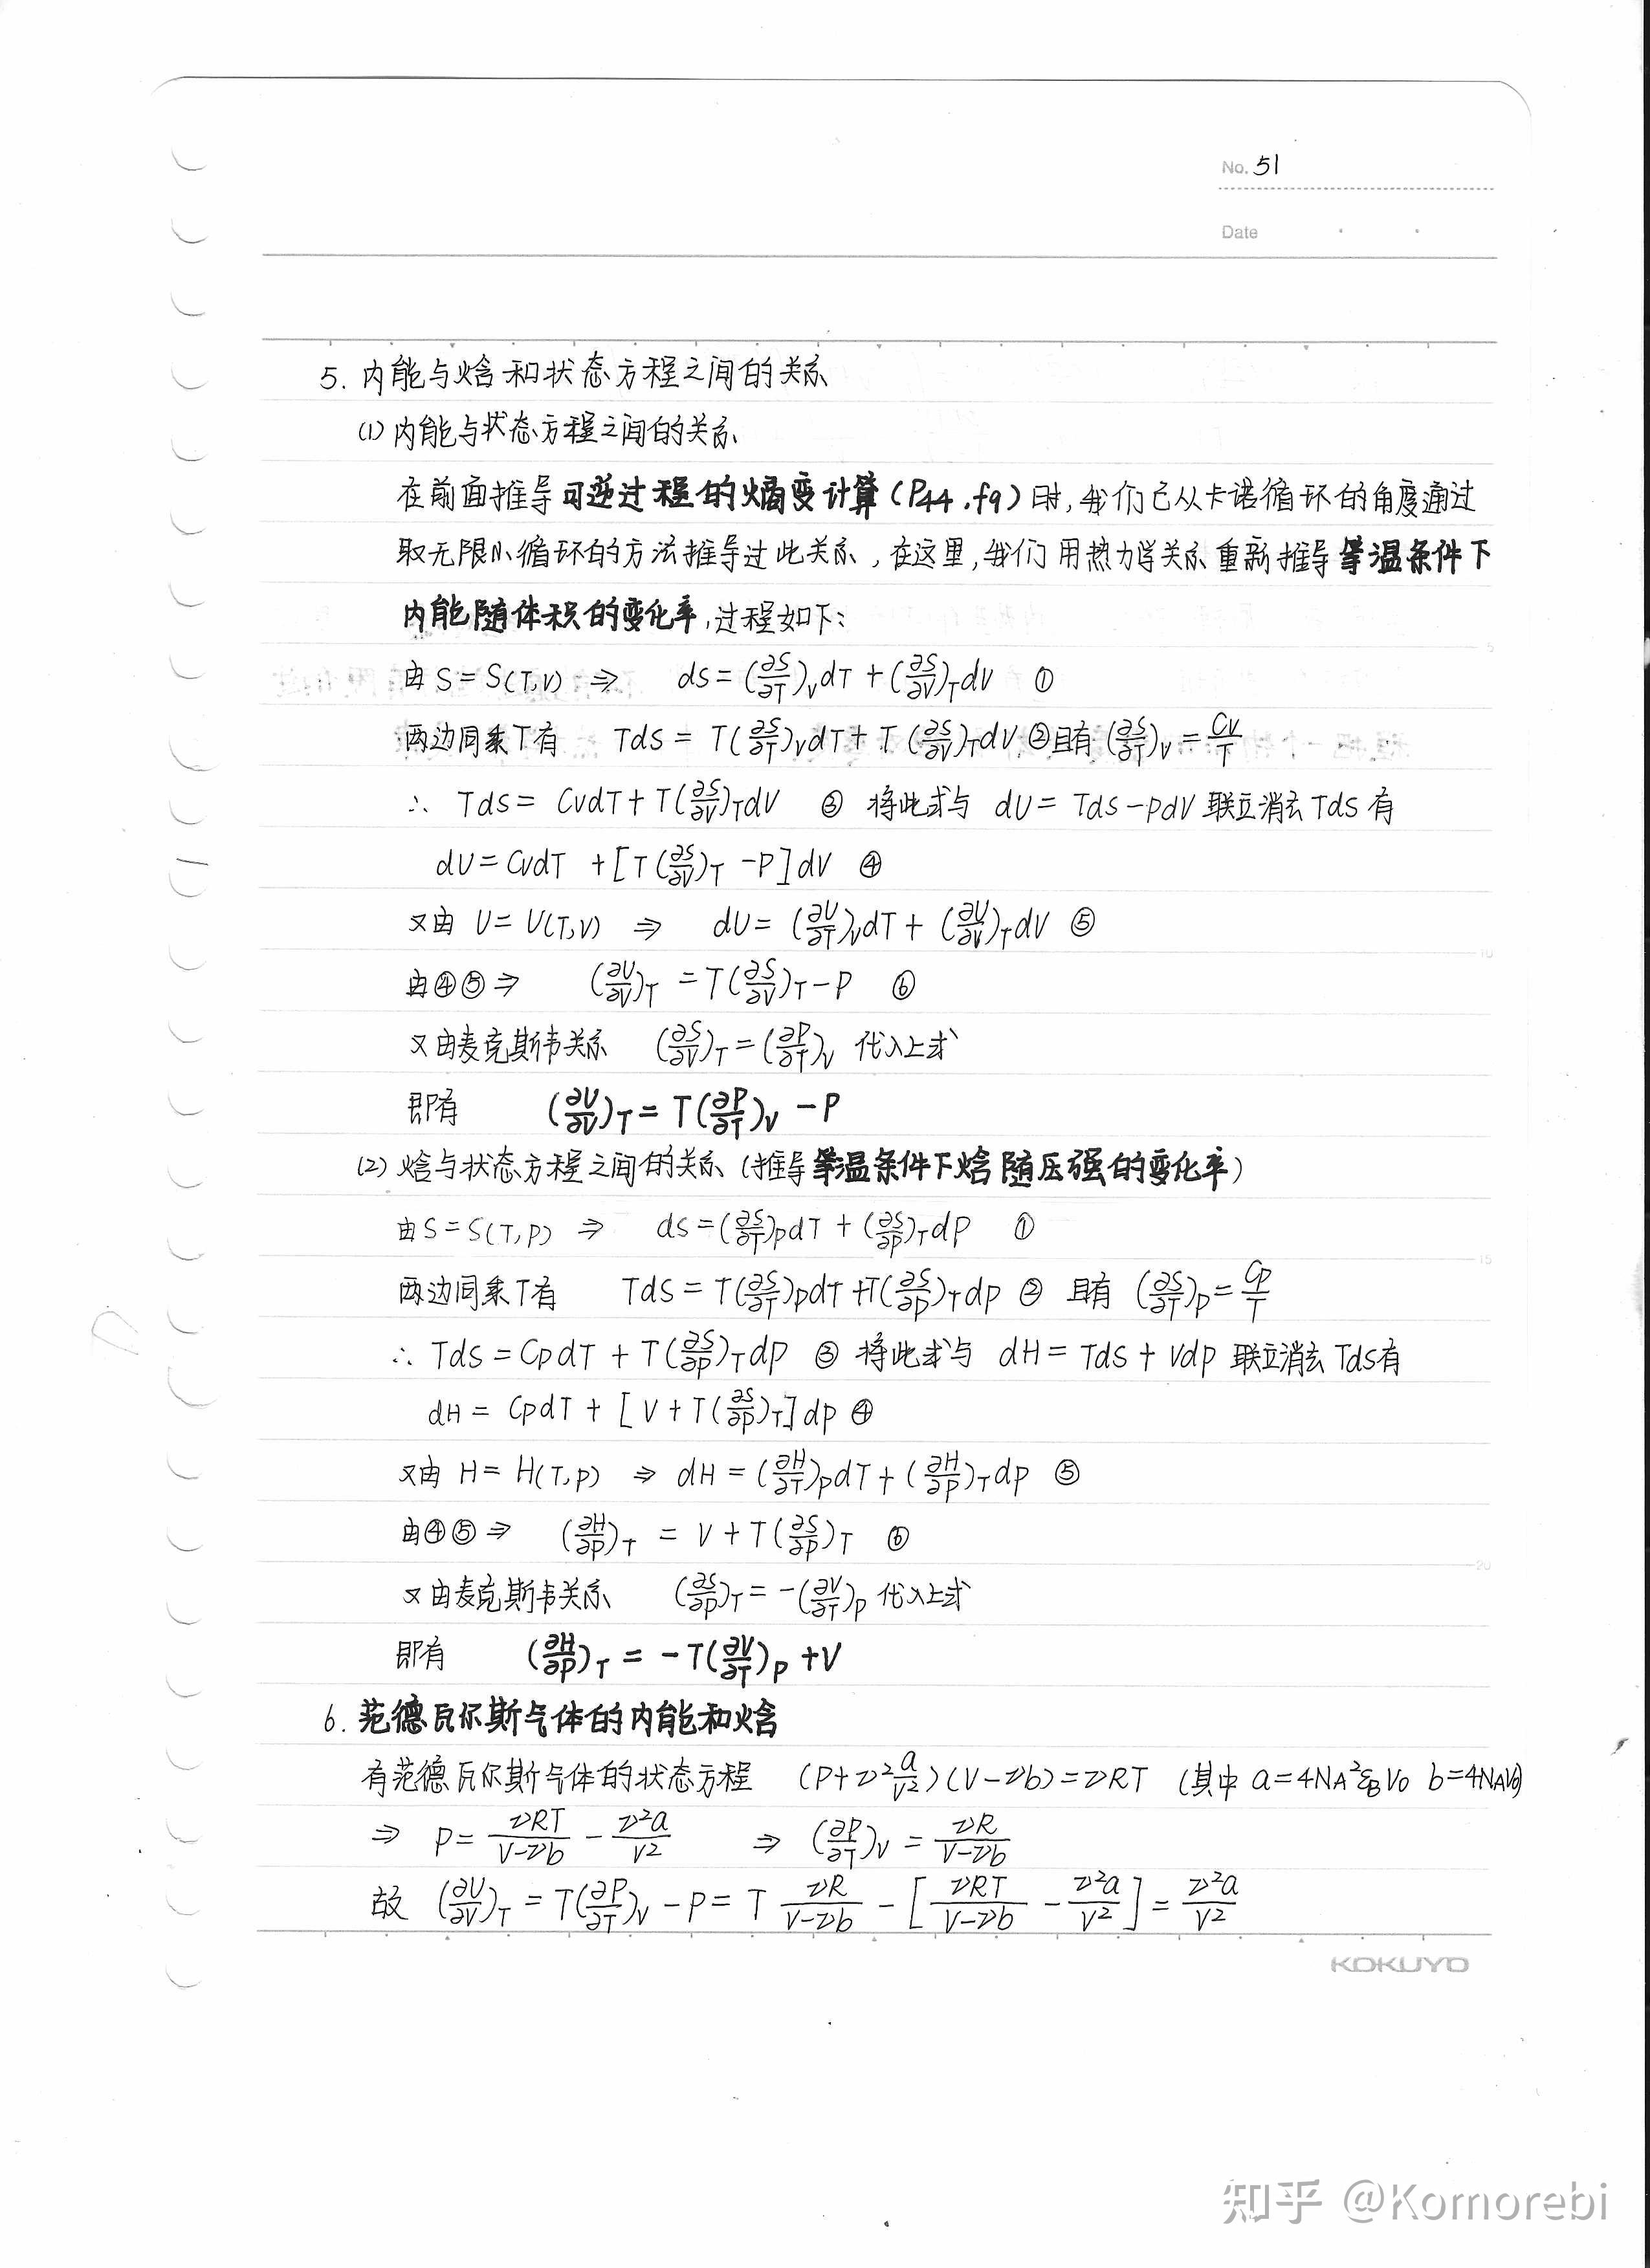 No. 51
Date
5. 内能与焓和状态方程之间的关系
(1) 内能与状态方程之间的关系
在前面推导可逆过程的熵变计算(P44.f9)时,我们已从卡诺循环的角度通过
取无限小循环的方法推导过此关系,在这里,我们用热力学关系重新推导等温条件下
内能随体积的变化率,过程如下:
由 S=S(T,V) ⇒ dS=(∂S/∂T)_V dT+(∂S/∂V)_T dV ①
两边同乘T有 TdS=T(∂S/∂T)_V dT+T(∂S/∂V)_T dV ②且有(∂S/∂T)_V=CV/T
∴ TdS=CVdT+T(∂S/∂V)_T dV ③ 将此式与 dU=TdS-PdV 联立消去TdS有
dU=CVdT+[T(∂S/∂V)_T-P]dV ④
又由 U=U(T,V) ⇒ dU=(∂U/∂T)_V dT+(∂U/∂V)_T dV ⑤
由④⑤⇒ (∂U/∂V)_T=T(∂S/∂V)_T-P ⑥
又由麦克斯韦关系 (∂S/∂V)_T=(∂P/∂T)_V 代入上式
即有 (∂U/∂V)_T=T(∂P/∂T)_V-P
(2) 焓与状态方程之间的关系(推导等温条件下焓随压强的变化率)
由S=S(T,P) ⇒ dS=(∂S/∂T)_P dT+(∂S/∂P)_T dP ①
两边同乘T有 TdS=T(∂S/∂T)_P dT+T(∂S/∂P)_T dP ② 且有 (∂S/∂T)_P=CP/T
∴ TdS=CPdT+T(∂S/∂P)_T dP ③ 将此式与 dH=TdS+VdP 联立消去TdS有
dH=CPdT+[V+T(∂S/∂P)_T]dP ④
又由 H=H(T,P) ⇒ dH=(∂H/∂T)_P dT+(∂H/∂P)_T dP ⑤
由④⑤⇒ (∂H/∂P)_T=V+T(∂S/∂P)_T ⑥
又由麦克斯韦关系 (∂S/∂P)_T=-(∂V/∂T)_P 代入上式
即有 (∂H/∂P)_T=-T(∂V/∂T)_P+V
6. 范德瓦尔斯气体的内能和焓
有范德瓦尔斯气体的状态方程 (P+ν²a/V²)(V-νb)=νRT (其中 a=4NA²εBV0 b=4NAV0)
⇒ P=νRT/(V-νb)-ν²a/V² ⇒ (∂P/∂T)_V=νR/(V-νb)
故 (∂U/∂V)_T=T(∂P/∂T)_V-P=T νR/(V-νb)-[νRT/(V-νb)-ν²a/V²]=ν²a/V²
KOKUYO
知乎 @Komorebi